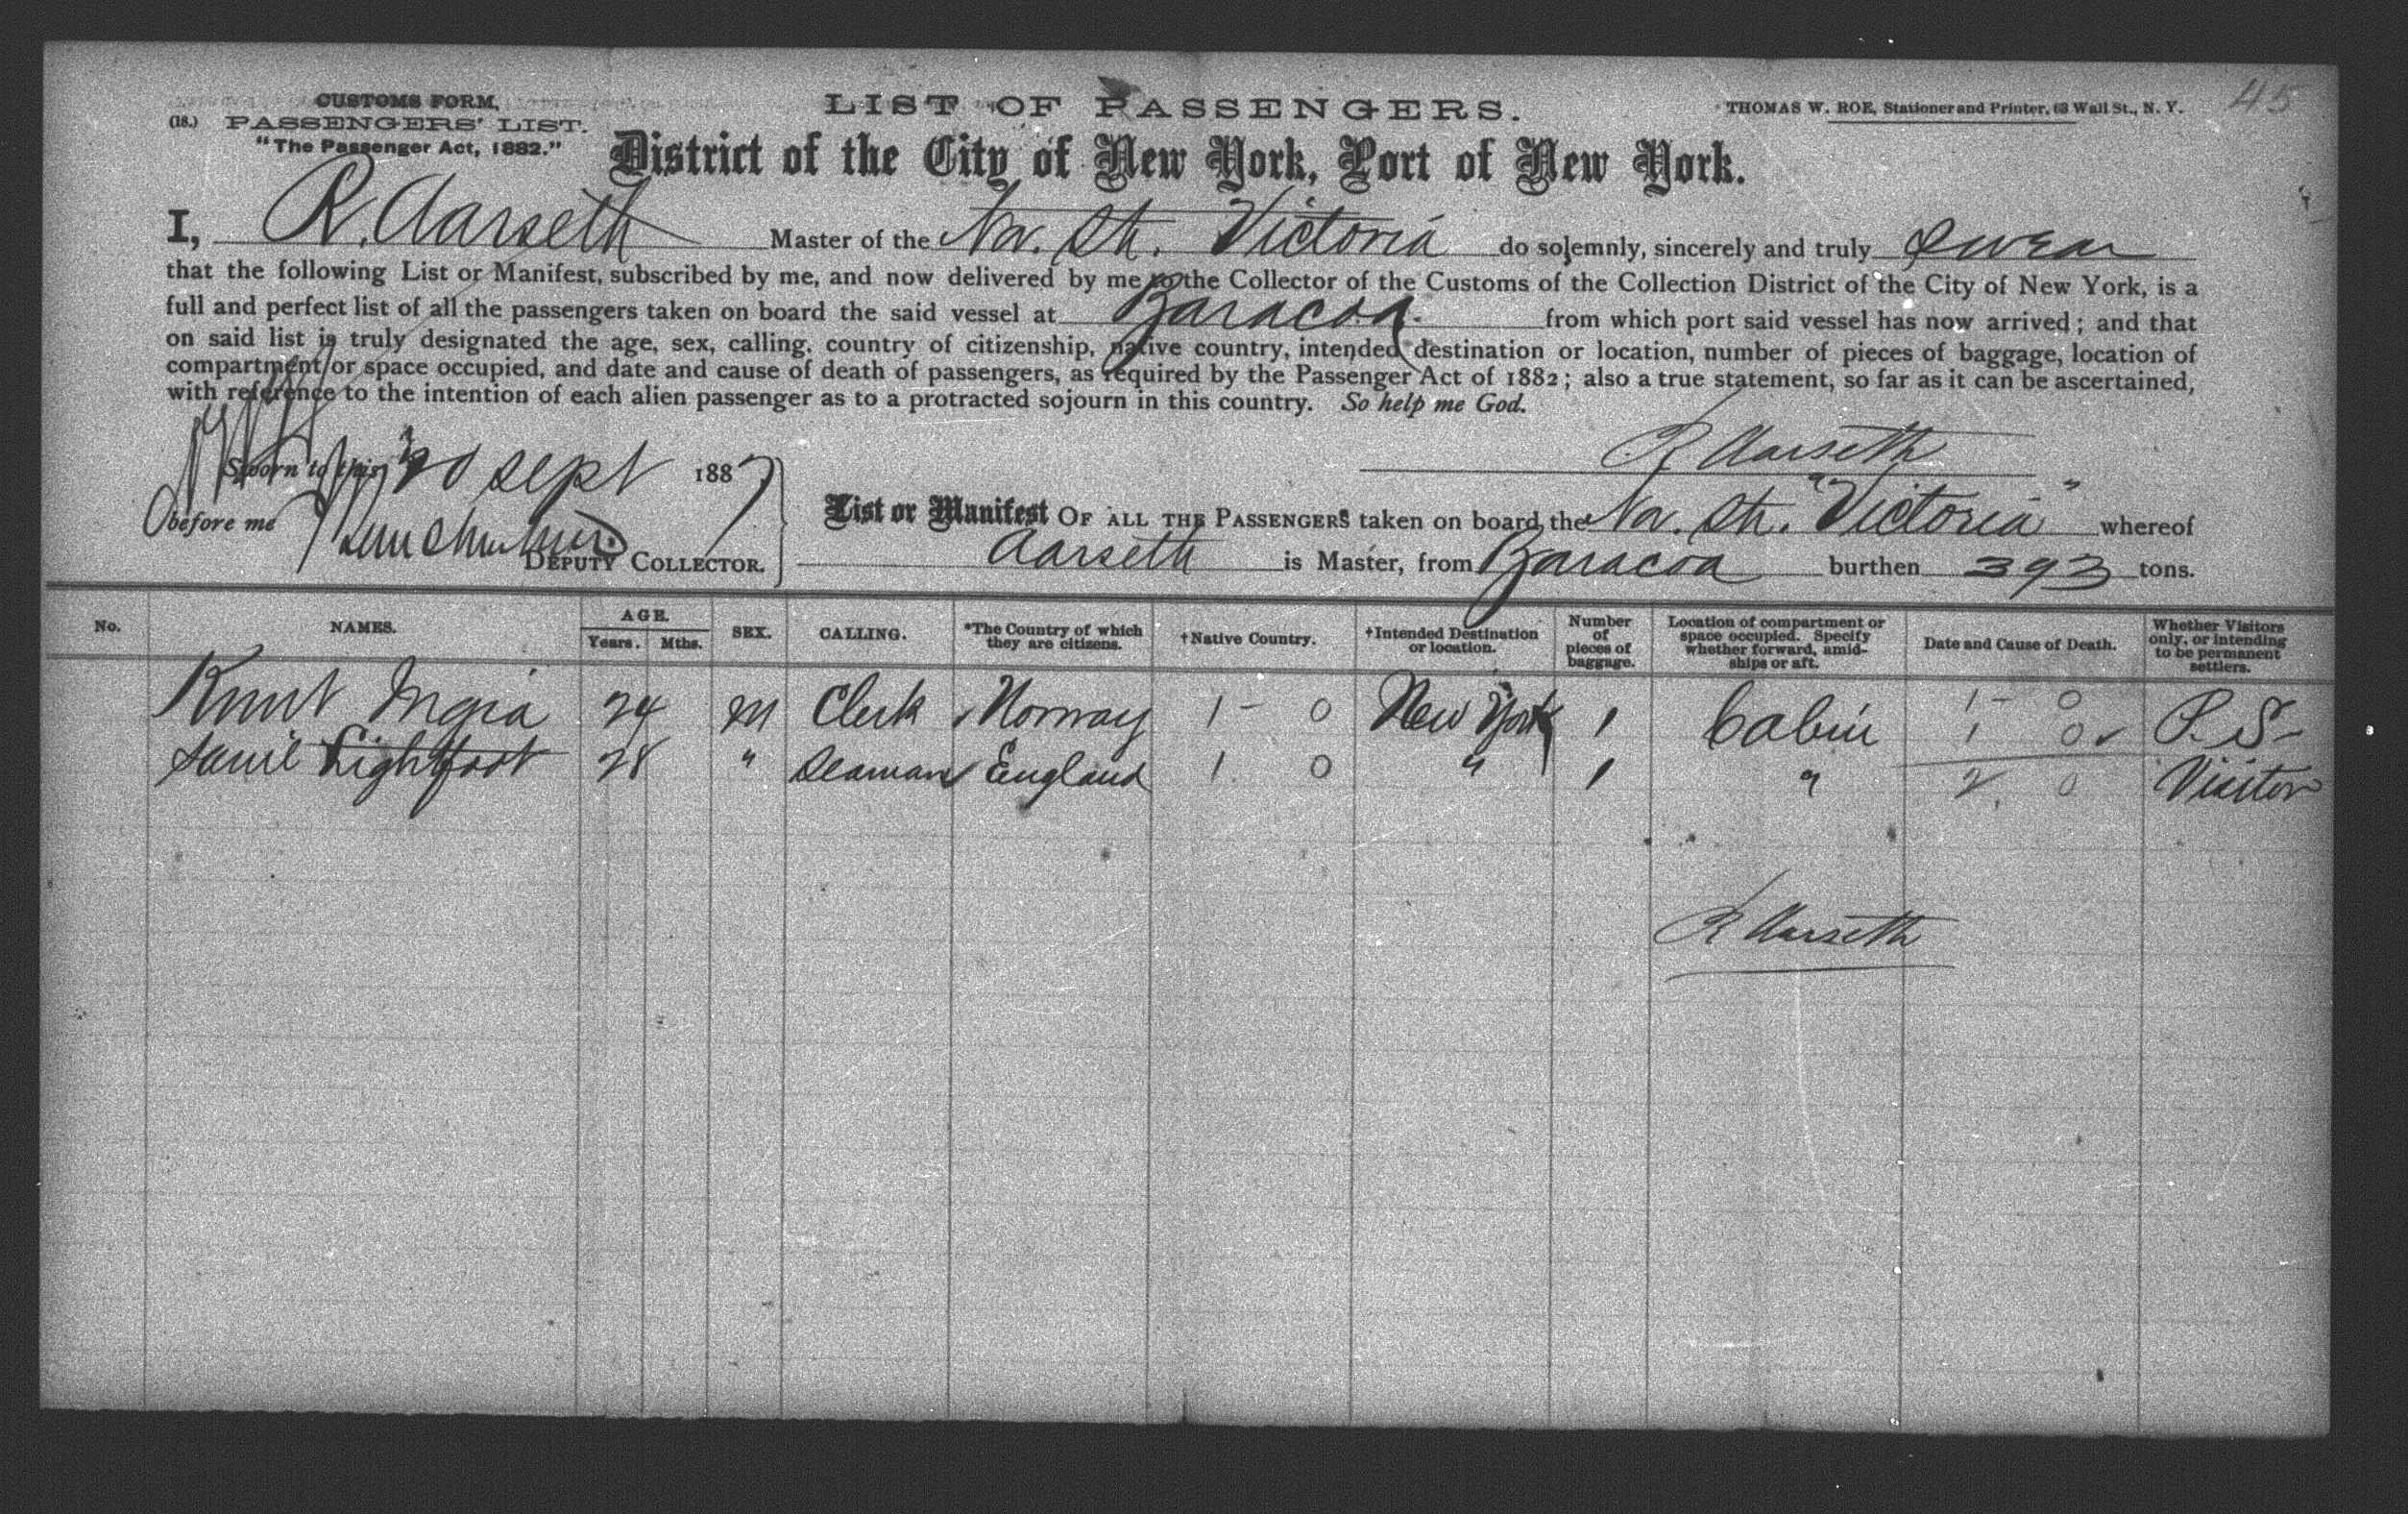 45
CUSTOMS FORM,
(18.) PASSENGERS' LIST.
"The Passenger Act, 1882."
LIST OF PASSENGERS.
THOMAS W. ROE, Stationer and Printer, 63 Wall St., N. Y.
District of the City of New York, Port of New York.
I, R. Aarseth Master of the Nor. Str. Victoria do solemnly, sincerely and truly swear
that the following List or Manifest, subscribed by me, and now delivered by me to the Collector of the Customs of the Collection District of the City of New York, is a
full and perfect list of all the passengers taken on board the said vessel at Baracoa. from which port said vessel has now arrived; and that
on said list is truly designated the age, sex, calling, country of citizenship, native country, intended destination or location, number of pieces of baggage, location of
compartment or space occupied, and date and cause of death of passengers, as required by the Passenger Act of 1882; also a true statement, so far as it can be ascertained,
with reference to the intention of each alien passenger as to a protracted sojourn in this country. So help me God.
R Aarseth
Sworn to this 20 Sept 1887
before me
DEPUTY COLLECTOR.
List or Manifest OF ALL THE PASSENGERS taken on board the Nor. Str. "Victoria" whereof
Aarseth is Master, from Baracoa burthen 393 tons.
No. NAMES. AGE. Years. Mths. SEX. CALLING. *The Country of which they are citizens. †Native Country. †Intended Destination or location. Number of pieces of baggage. Location of compartment or space occupied. Specify whether forward, amidships or aft. Date and Cause of Death. Whether Visitors only, or intending to be permanent settlers.
Knut Ingia 24 M Clerk Norway 1 - 0 New York 1 Cabin 1 - 0 P. S-
1 0
Lightfoot 28 " Seaman England 1. 0 " 1 " 2. 0 Visitor
R Aarseth